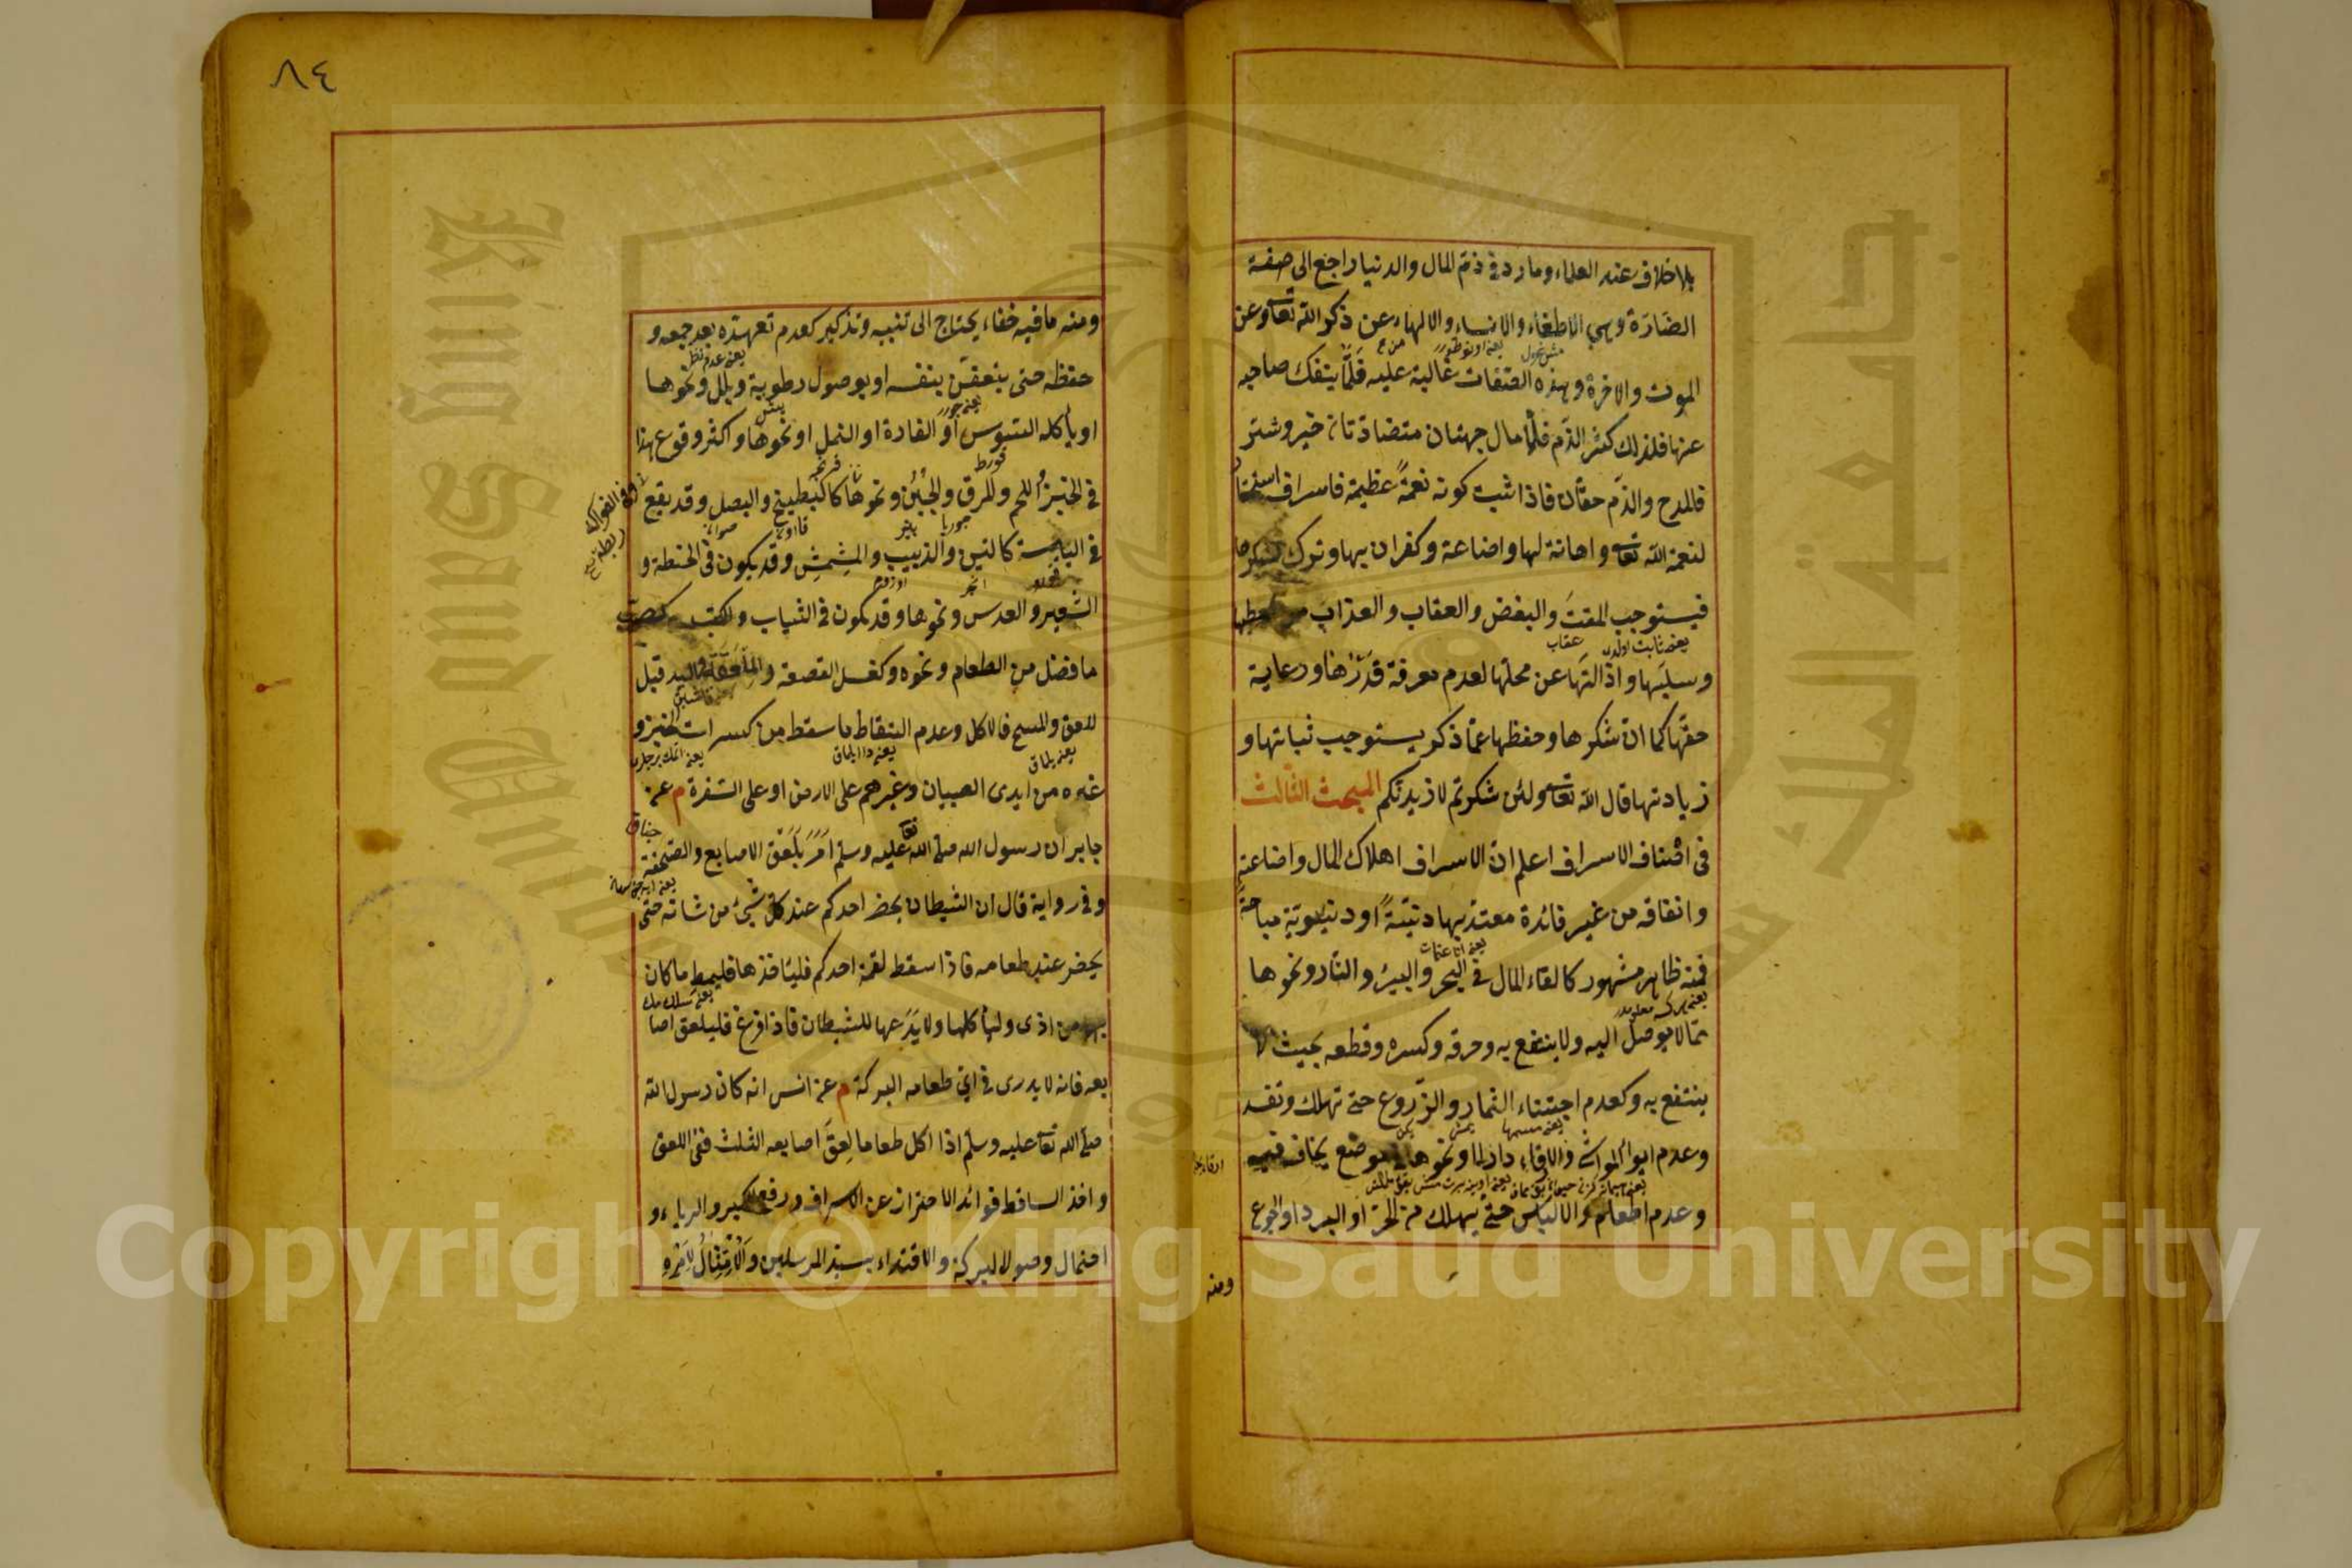 بلا خلاف عند العلماء وما ورد في ذم المال والدنيا راجع الى صفة
الضارة وهي الاطغاء والانساء والالهاء عن ذكر الله تعا وعن
الموت والآخرة وهذه الصفات غالبة عليه قلما ينفك صاحبه
عنها فلذلك كثر الذم فللمال جهتان متضادتان خير وشر
فالمدح والذم حقان فاذا ثبت كونه نعمة عظيمة فاسراف استخفاف
لنعمة الله تعا واهانة لها واضاعة وكفران بها وترك لشكرها
فيستوجب المقت والبغض والعقاب والعذاب من معطيها
وسلبها وازالتها عن محلها لعدم معرفة قدرها ورعاية
حقها كما ان شكرها وحفظها عما ذكر يستوجب ثباتها و
زيادتها قال الله تعا ولئن شكرتم لازيدنكم المبحث الثالث
في اصناف الاسراف اعلم ان الاسراف اهلاك المال واضاعته
وانفاقه من غير فائدة معتد بها دينية او دنيوية مباحة
فمنه ظاهر مشهور كالقاء المال في البحر والبئر والنار ونحوها
مما لا يوصل اليه ولا ينتفع به وحرقه وكسره وقطعه بحيث لا
ينتفع به وكعدم اجتناء الثمار والزروع حتى تهلك وتفسد
وعدم ايواء المواشي والارقاء دارا او نحوها في موضع يخاف فيه
وعدم اطعام والالباس حتى يهلك من الحر او البرد او الجوع
ومنه
٨٤
ومنه ما فيه خفاء يحتاج الى تنبيه وتذكير كعدم تعهده بعد جمعه و
حفظه حتى يتعفن بنفسه او بوصول رطوبة وبلل ونحوها
او يأكله السوس او الفارة او النمل او نحوها واكثر وقوع هذا
في الخبز واللحم والمرق والجبن ونحوها كالبطيخ والبصل وقد يقع
وفي الفواكه
في اليابسة كالتين والزبيب والمشمش وقد يكون في الحنطة و
الشعير والعدس ونحوها وقد يكون في الثياب والكتب كصب
ما فضل من الطعام ونحوه وكغسل القصعة والملعقة واليد قبل
اللعق والمسح فالاكل وعدم التقاط ما سقط من كسرات الخبز و
غيره من ايدي الصبيان وغيرهم على الارض او على السفرة م عن
جابر ان رسول الله صلى الله تعا عليه وسلم امر بلعق الاصابع والصحفة
وفي رواية قال ان الشيطان يحضر احدكم عند كل شئ من شانه حتى
يحضر عند طعامه فاذا سقط لقمة احدكم فليأخذها فليمط ما كان
بها من اذى وليأكلها ولا يدعها للشيطان فاذا فرغ فليلعق اصا
بعه فانه لا يدري في اي طعامه البركة م عن انس انه كان رسول الله
صلى الله تعا عليه وسلم اذا اكل طعاما لعق اصابعه الثلث ففي اللعق
واخذ الساقط فوائد الاحتراز عن الاسراف ورفع الكبر والرياء و
احتمال وصولا لبركة والاقتداء بسيد المرسلين والامتثال لامره